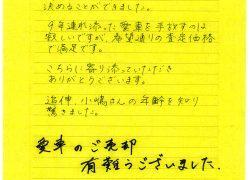 決めることができました。
9年連れ添った愛車を手放すのは
寂しいですが、希望通りの査定価格
で満足です。
こちらに寄り添っていただき
ありがとうございます。
追伸、小嶋さんの年齢を知り
驚きました。
愛車のご売却
有難うございました。